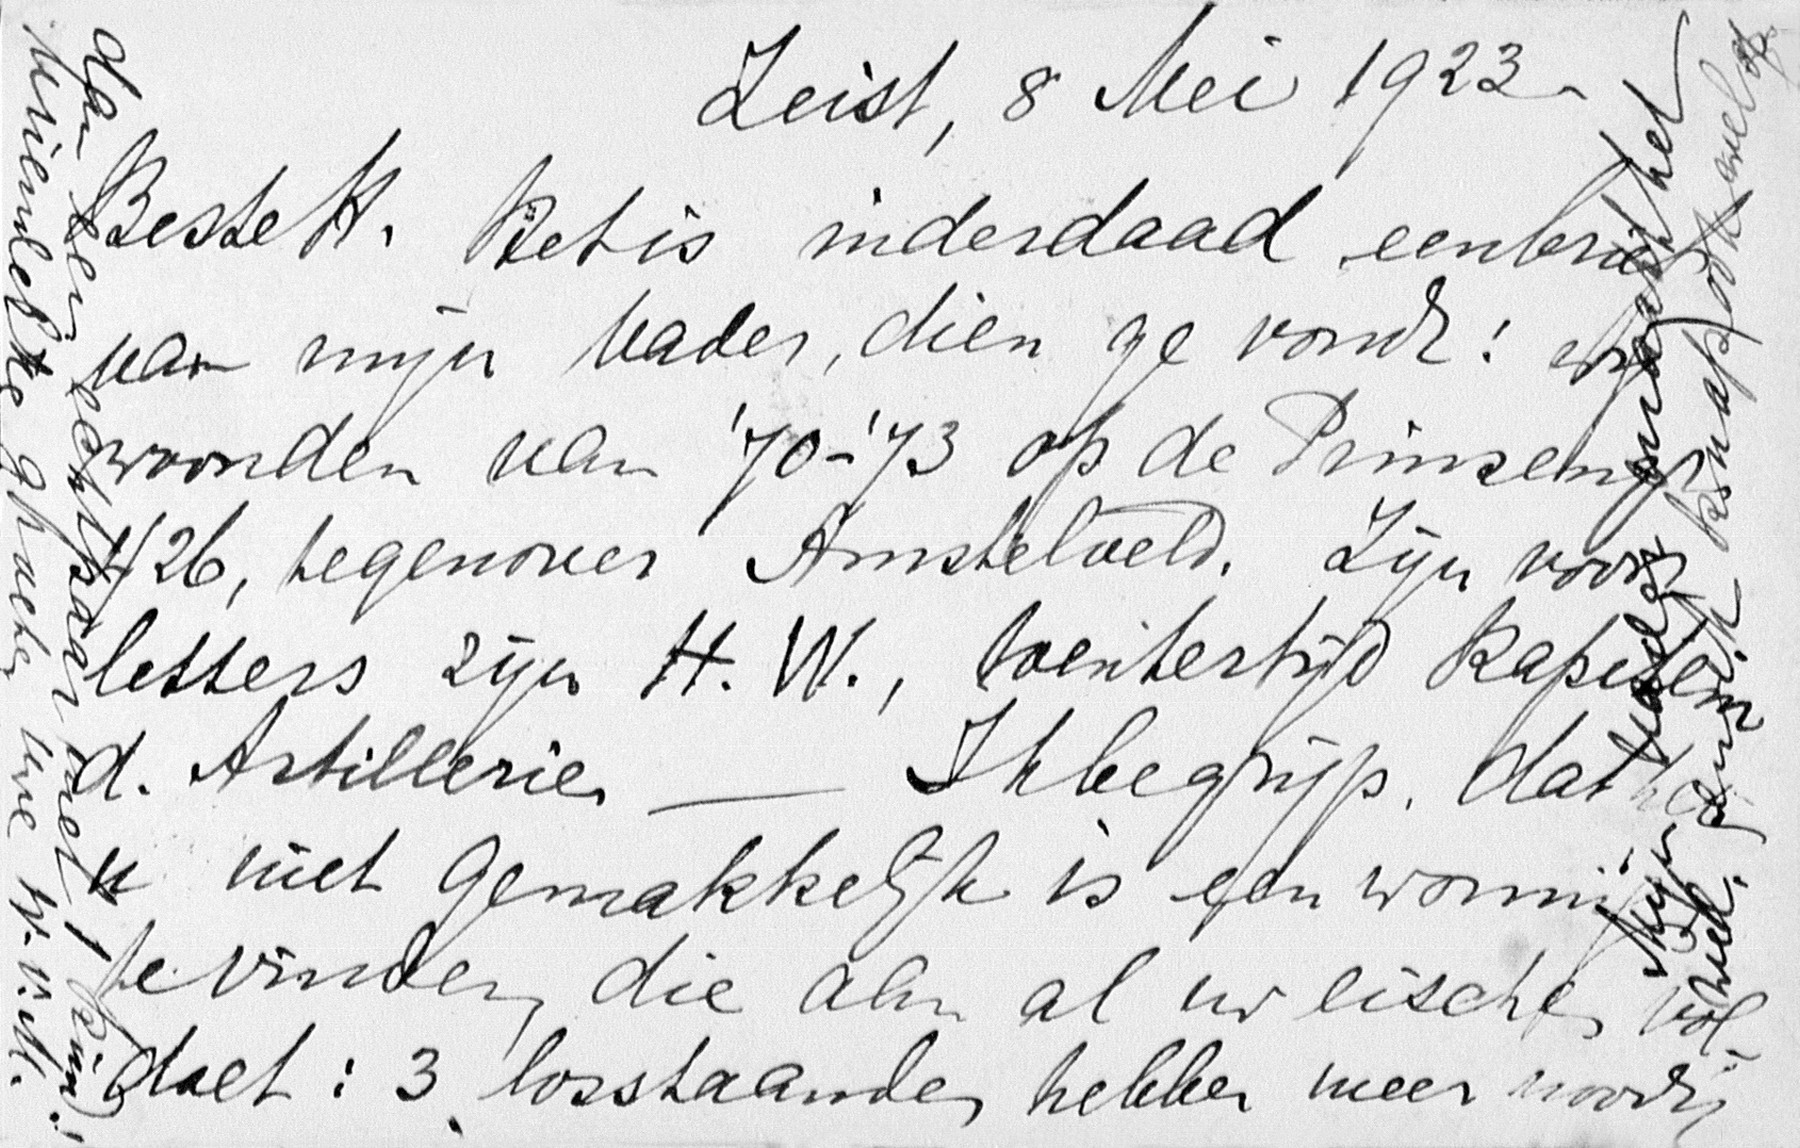 Zeist, 8 Mei 1923.
Beste H. Het is inderdaad een brief
van mijn vader, dien ge vondt! Wij
woonden van '70-'73 op de Prinsengr
426, tegenover Amstelveld. Zijn voor
letters zijn H. W., toenitertijd kapitein
d. Artillerie. — Ik begrijp, dat het
u niet gemakkelijk is een woning
te vinden, die aan al uw eischen vol-
doet: 3 losstaanden hebben meer noodig
dan een echtpaar met 1 kind!
Vriendelijke groeten uw W. v. N.
Mijn vader maakt het
heel. genoeg knap ook wel